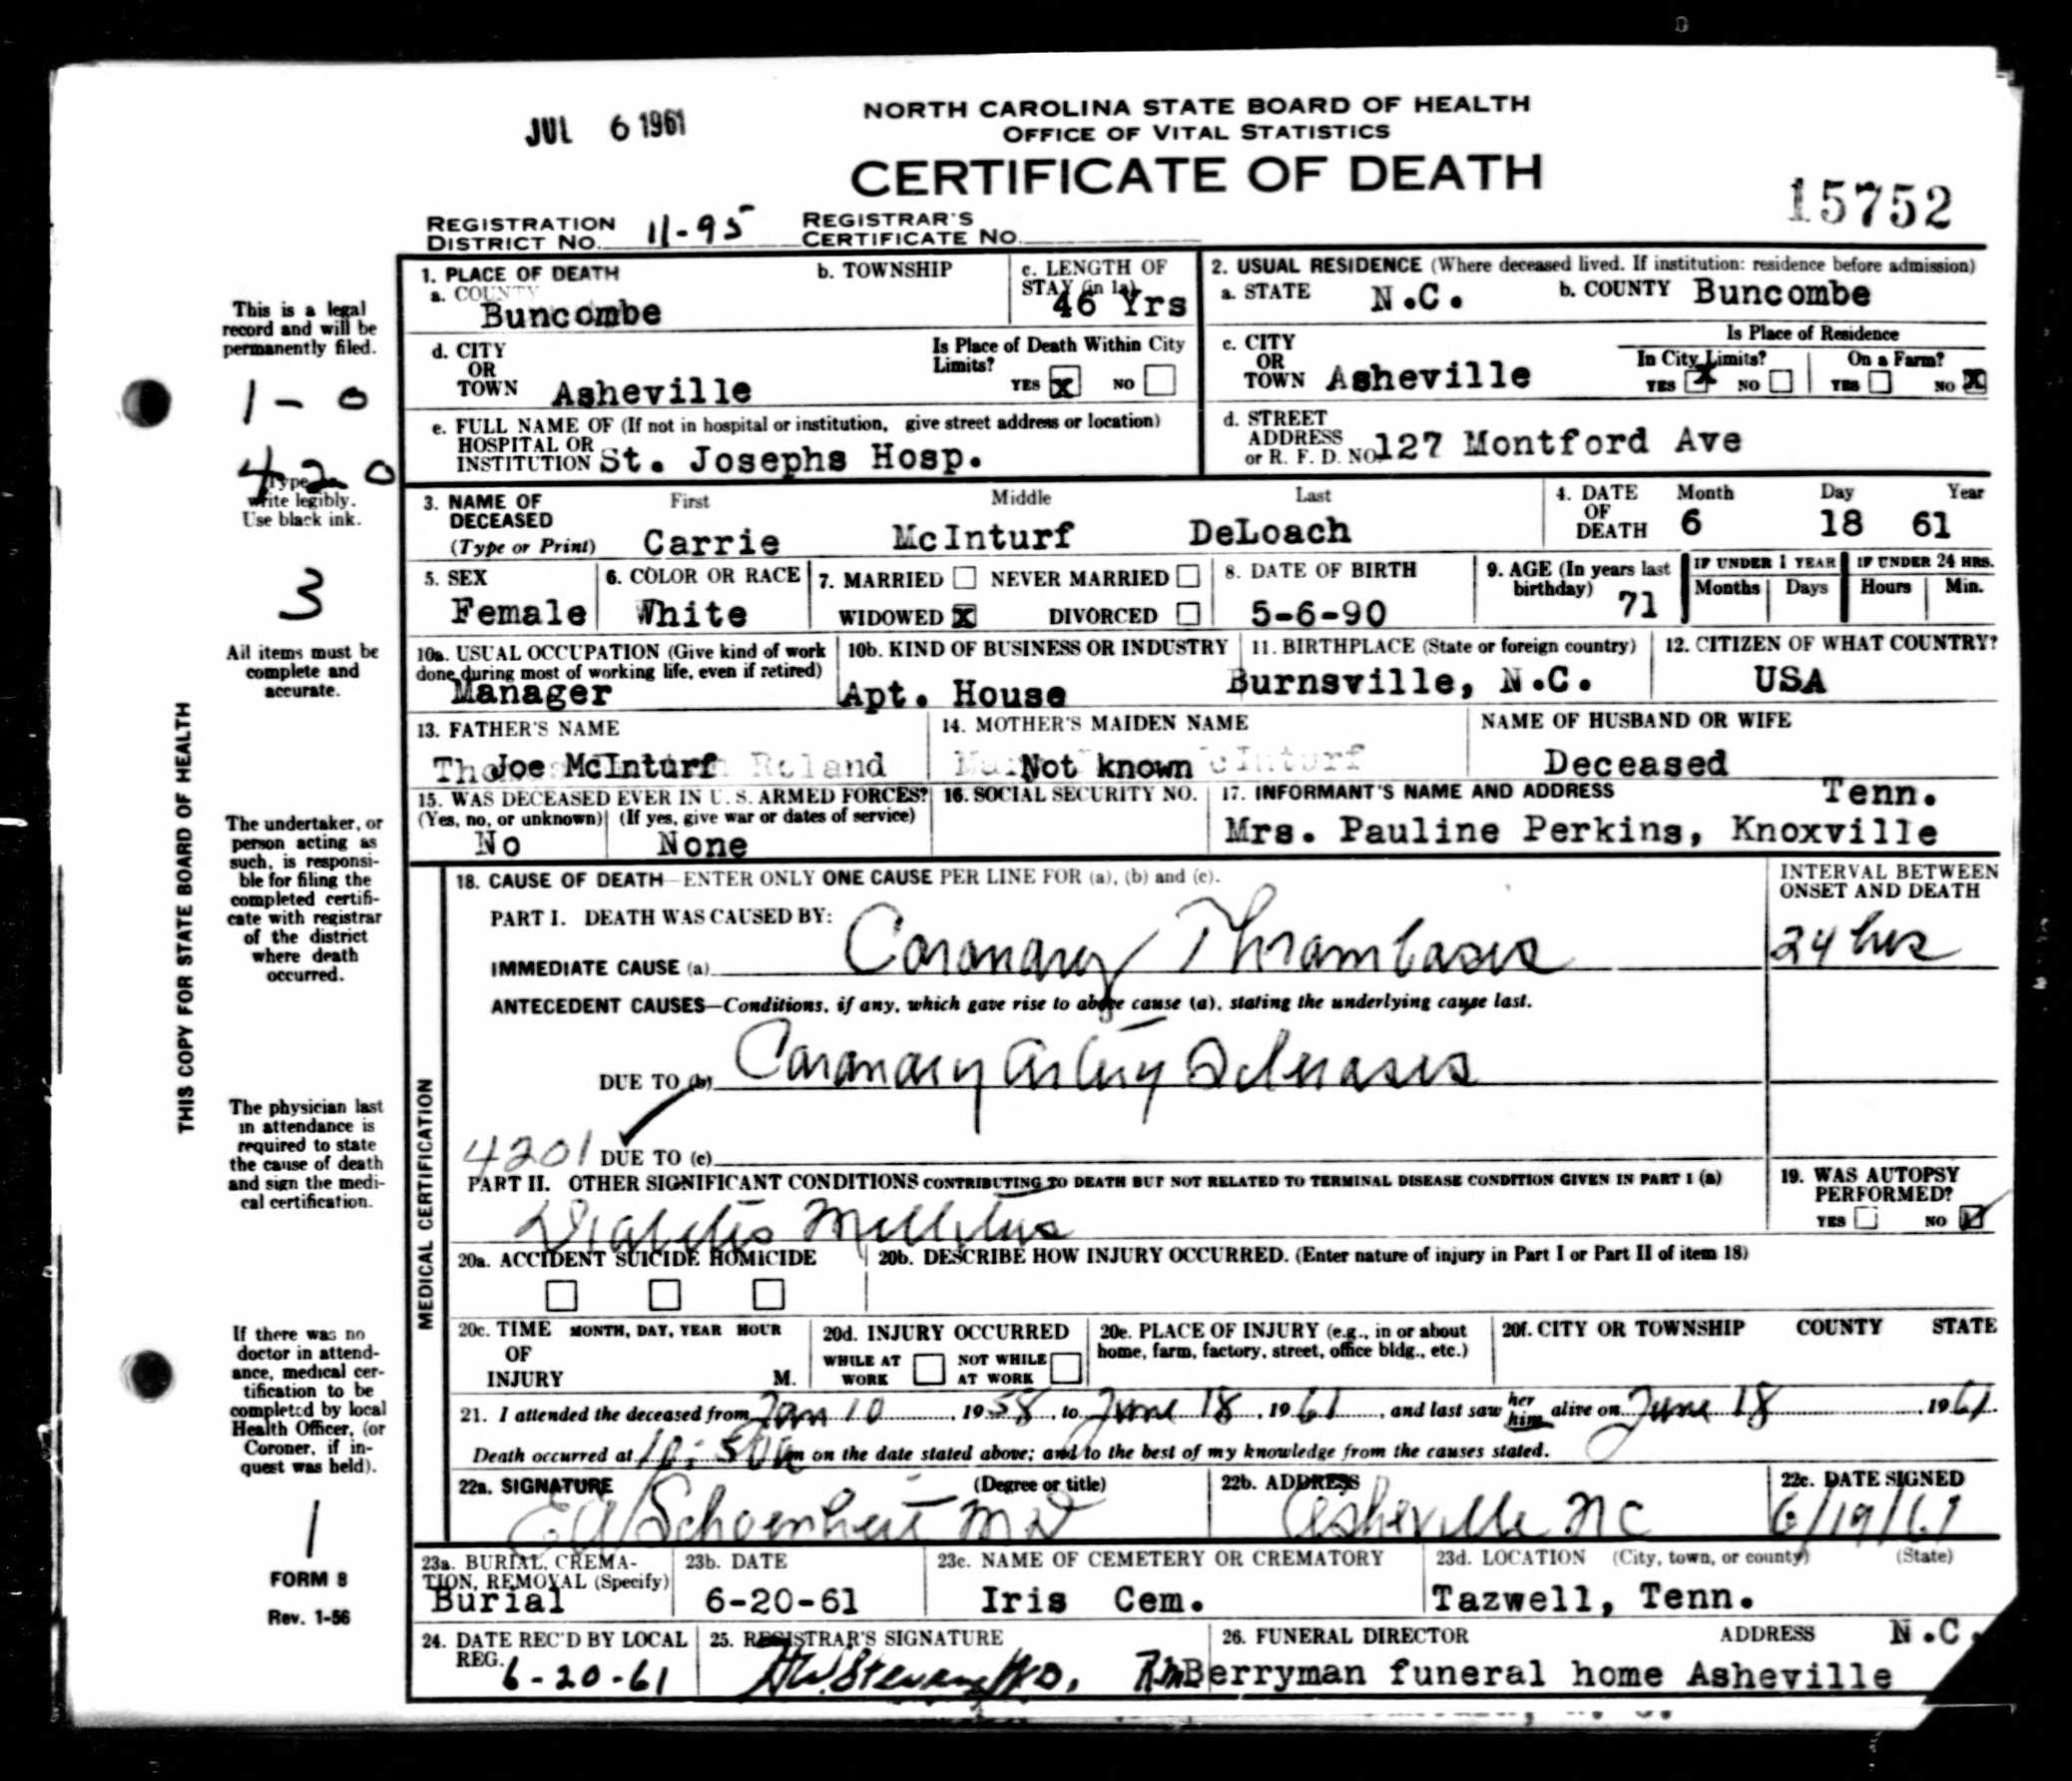 JUL 6 1961
NORTH CAROLINA STATE BOARD OF HEALTH
OFFICE OF VITAL STATISTICS
CERTIFICATE OF DEATH
15752
REGISTRATION DISTRICT NO. 11-95 REGISTRAR'S CERTIFICATE NO.
THIS COPY FOR STATE BOARD OF HEALTH
This is a legal
record and will be
permanently filed.
1 - 0
420
Type
write legibly.
Use black ink.
3
All items must be
complete and
accurate.
The undertaker, or
person acting as
such, is responsi-
ble for filing the
completed certifi-
cate with registrar
of the district
where death
occurred.
The physician last
in attendance is
required to state
the cause of death
and sign the medi-
cal certification.
If there was no
doctor in attend-
ance, medical cer-
tification to be
completed by local
Health Officer, (or
Coroner, if in-
quest was held).
1
FORM 8
Rev. 1-56
1. PLACE OF DEATH
a. COUNTY
Buncombe
b. TOWNSHIP
c. LENGTH OF
STAY (in 1a)
46 Yrs
2. USUAL RESIDENCE (Where deceased lived. If institution: residence before admission)
a. STATE N.C. b. COUNTY Buncombe
d. CITY
OR
TOWN Asheville
Is Place of Death Within City
Limits?
YES X NO
c. CITY
OR
TOWN Asheville
Is Place of Residence
In City Limits? On a Farm?
YES X NO YES NO X
e. FULL NAME OF (If not in hospital or institution, give street address or location)
HOSPITAL OR
INSTITUTION St. Josephs Hosp.
d. STREET
ADDRESS
or R. F. D. NO 127 Montford Ave
3. NAME OF
DECEASED
(Type or Print)
First Middle Last
Carrie McInturf DeLoach
4. DATE
OF
DEATH
Month Day Year
6 18 61
5. SEX
Female
6. COLOR OR RACE
White
7. MARRIED NEVER MARRIED
WIDOWED X DIVORCED
8. DATE OF BIRTH
5-6-90
9. AGE (In years last
birthday) 71
IF UNDER 1 YEAR IF UNDER 24 HRS.
Months Days Hours Min.
10a. USUAL OCCUPATION (Give kind of work
done during most of working life, even if retired)
Manager
10b. KIND OF BUSINESS OR INDUSTRY
Apt. House
11. BIRTHPLACE (State or foreign country)
Burnsville, N.C.
12. CITIZEN OF WHAT COUNTRY?
USA
13. FATHER'S NAME
Joe McInturf Roland
14. MOTHER'S MAIDEN NAME
Not known
NAME OF HUSBAND OR WIFE
Deceased
15. WAS DECEASED EVER IN U. S. ARMED FORCES?
(Yes, no, or unknown) (If yes, give war or dates of service)
No None
16. SOCIAL SECURITY NO.
17. INFORMANT'S NAME AND ADDRESS Tenn.
Mrs. Pauline Perkins, Knoxville
MEDICAL CERTIFICATION
18. CAUSE OF DEATH—ENTER ONLY ONE CAUSE PER LINE FOR (a), (b) and (c).
INTERVAL BETWEEN
ONSET AND DEATH
PART I. DEATH WAS CAUSED BY:
IMMEDIATE CAUSE (a) Coronary Thrombosis 24 hrs
ANTECEDENT CAUSES—Conditions, if any, which gave rise to above cause (a), stating the underlying cause last.
DUE TO (b) Coronary Artery Sclerosis
4201 DUE TO (c)
PART II. OTHER SIGNIFICANT CONDITIONS CONTRIBUTING TO DEATH BUT NOT RELATED TO TERMINAL DISEASE CONDITION GIVEN IN PART I (a)
Diabetis Mellitus
19. WAS AUTOPSY
PERFORMED?
YES NO
20a. ACCIDENT SUICIDE HOMICIDE
20b. DESCRIBE HOW INJURY OCCURRED. (Enter nature of injury in Part I or Part II of item 18)
20c. TIME MONTH, DAY, YEAR HOUR
OF
INJURY M.
20d. INJURY OCCURRED
WHILE AT WORK NOT WHILE AT WORK
20e. PLACE OF INJURY (e.g., in or about
home, farm, factory, street, office bldg., etc.)
20f. CITY OR TOWNSHIP COUNTY STATE
21. I attended the deceased from Jan 10, 1958, to June 18, 1961, and last saw her him alive on June 18, 1961.
Death occurred at m on the date stated above; and to the best of my knowledge from the causes stated.
22a. SIGNATURE (Degree or title)
EW Schoenheit MD
22b. ADDRESS
Asheville NC
22c. DATE SIGNED
6/19/61
23a. BURIAL, CREMA-
TION, REMOVAL (Specify)
Burial
23b. DATE
6-20-61
23c. NAME OF CEMETERY OR CREMATORY
Iris Cem.
23d. LOCATION (City, town, or county) (State)
Tazwell, Tenn.
24. DATE REC'D BY LOCAL
REG. 6-20-61
25. REGISTRAR'S SIGNATURE
HW. Stevens M.D.
26. FUNERAL DIRECTOR ADDRESS N.C.
Berryman funeral home Asheville